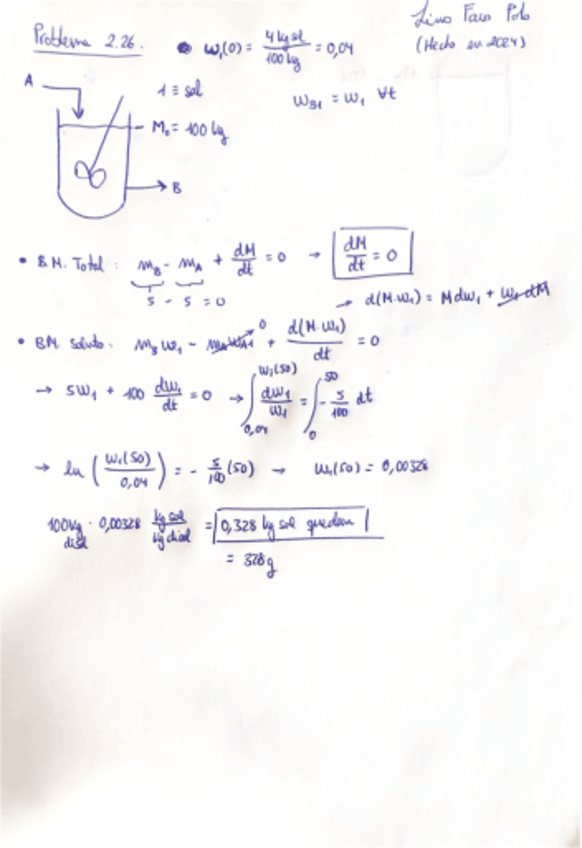 Lino Faro Polo
(Hecho en 2024)
Problema 2.26.
• w₁(0) = 4 kg sol / 100 kg = 0,04
A
1 ≡ sal
w_B1 = w₁ ∀t
M₀ = 100 kg
B
• B.M. Total: m_B - m_A + dM/dt = 0 → dM/dt = 0
5 - 5 = 0
→ d(M·w₁) = M dw₁ + w₁ dM
• BM. soluto: m_B w₁ - m_A w_A1 + d(M·w₁)/dt = 0
0
→ 5w₁ + 100 dw₁/dt = 0 → ∫_{0,04}^{w₁(50)} dw₁/w₁ = ∫_0^{50} - 5/100 dt
→ ln (w₁(50)/0,04) = - 5/100 (50) → w₁(50) = 0,00328
100 kg disol · 0,00328 kg sol / kg disol = 0,328 kg sol quedan
= 328 g